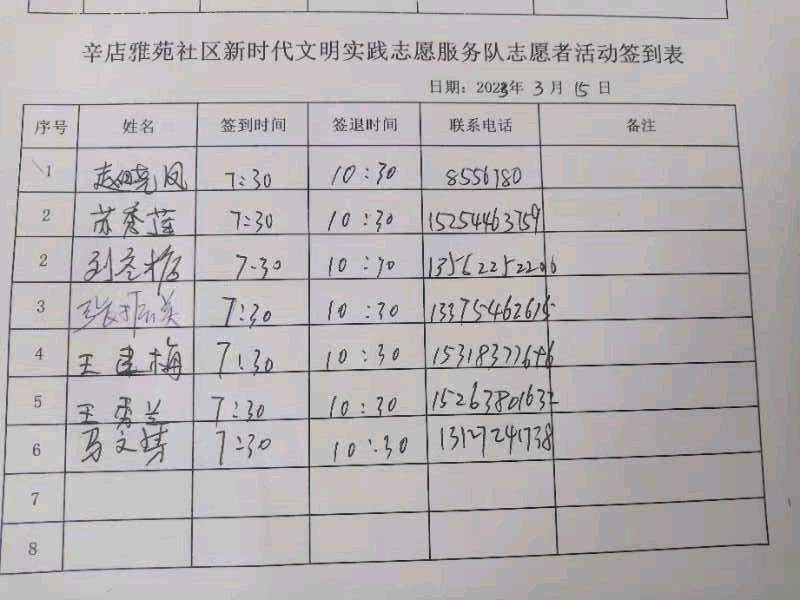 辛店雅苑社区新时代文明实践志愿服务队志愿者活动签到表
日期：2023年 3 月 15 日
序号 姓名 签到时间 签退时间 联系电话 备注
1 赵晓凤 7:30 10:30 8556780
2 苏秀莲 7:30 10:30 15254463759
2 7:30 10:30 13562252206
3 7:30 10:30
4 王建梅 7:30 10:30
5 王秀兰 7:30 10:30 15263801632
6 马文靖 7:30 10:30 13127241738
7
8